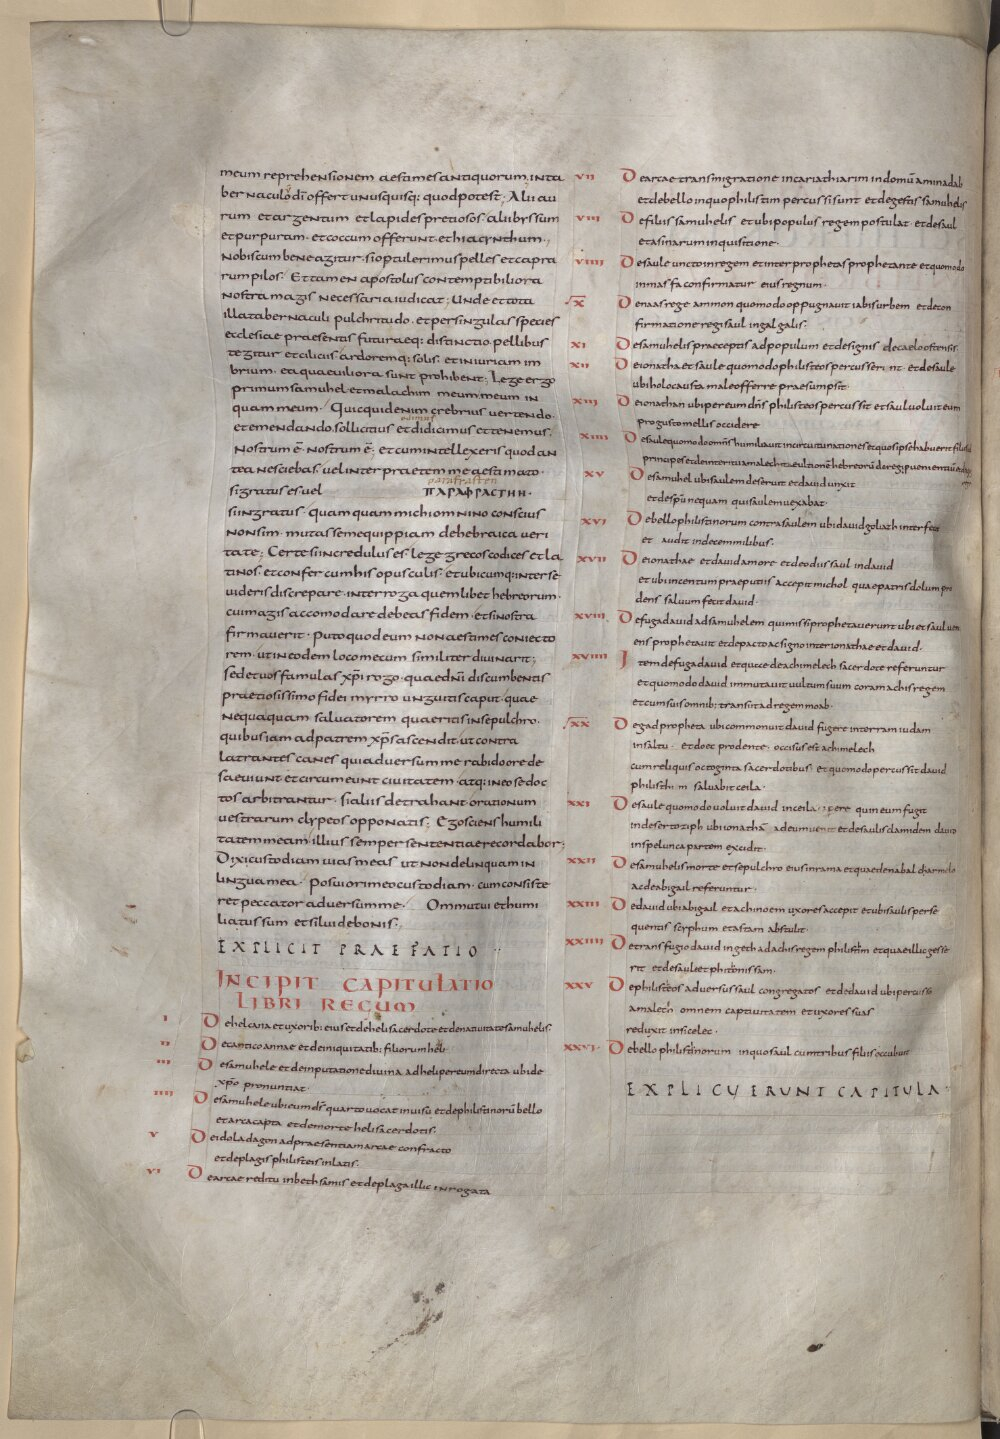 meum reprehensionem aestimes antiquorum. inta
bernaculo di offert unusquisq; quod potest; Alii au
rum et argentum et lapides pretiosos. alii byssum
et purpuram. et coccum offerunt. et hiacynthum;
Nobiscum bene agitur. si optulerimus pelles et capra
rum pilos. Et tamen apostolus contemptibiliora
nostra magis necessaria iudicat; Unde et tota
illa tabernaculi pulchritudo. et per singulas species
ecclesiae praesentis futuraeq; distinctio. pellibus
tegitur et ciliciis. ardoremq; solis. et iniuriam im
brium. ea quae uiliora sunt prohibent; Lege ergo
primum samuhel. et malachim meum. meum in
quam meum. Quicquid enim crebrius uertendo.
et emendando. sollicitius et didicimus et tenemus.
nostrum ē. nostrum ē; et cum intellexeris quod an
tea nesciebas. uel interpraetem me aestimato
parafrasten
si gratus es. uel ΠΑΡΑΦΡΑСΤΗΝ.
si ingratus. Quamquam michi omnino conscius
non sim. mutasse me quippiam de hebraica ueri
tate; Certe si incredulus es. lege grecos codices et la
tinos. et confer cum his opusculis. et ubicumq; inter se
uideris discrepare. interroga quemlibet hebreorum.
cui magis accomodare debeas fidem. et si nostra
firmauerit. puto quod eum non aestimes coniecto
rem. ut in eodem loco mecum similiter diuinarit;
sed et uos famulas xp̄i rogo. quae dn̄i discumbentis
praetiosissimo fidei myrro unguitis caput. quae
nequaquam saluatorem quaeritis in sepulchro.
quibus iam ad patrem xp̄s ascendit. ut contra
latrantes canes qui aduersum me rabido ore de
saeuiunt. et circumeunt ciuitatem. atq; in eo se doc
tos arbitrantur. si aliis detrahant. orationum
uestrarum clypeos opponatis; Ego sciens humili
tatem meam. illius semper sententiae recordabor;
Dixi custodiam uias meas ut non delinquam in
lingua mea. Posui ori meo custodiam. cum consiste
ret peccator aduersum me. Ommutui et humi
liatus sum et silui de bonis.
EXPLICIT PRAEFATIO
INCIPIT CAPITULATIO
LIBRI REGUM
I De helcana et uxorib: eius et de heli sacerdote et de natiuitate samuhelis.
II De cantico annae et de iniquitatib: filiorum heli
III De samuhele et de inputatione diuina ad heli per eum directa ubi de
xp̄o pronuntiat.
IIII De samuhele ubi eum ds̄ quarto uocat in uisu et de philistinorū bello
et arca capta et de morte heli sacerdotis.
V De idola dagon ad praesentiam arcae confracto
et de plagis philisteis inlatis.
VI De arcae reditu in bethsamis et de plaga illic inrogata
VII De arcae transmigratione in cariathiarim in domū aminadab
et de bello in quo philistim percussi sunt et de gestis samuhelis
VIII De filiis samuhelis et ubi populus regem postulat et de saul
et asinarum inquisitione.
VIIII De saule uncto in regem et inter prophetas prophetante et quomodo
in masfa confirmatur eius regnum.
X De naas rege ammon quomodo oppugnauit iabis urbem et de con
firmatione regis saul in galgalis.
XI De samuhelis praeceptis ad populum et de signis de caelo ostensis.
XII De ionatha et saule quomodo philisteos percusserint. et de saule
ubi holocausta male offerre praesumpsit.
XIII De ionathan ubi per eum dn̄s philisteos percussit et saul uoluit eum
pro gusto mellis occidere
XIIII De saule quomodo omēs humiliauit in circuitu nationes et quos ipse habuerit filios
principes et de interitu amalech
XV De samuhel ubi saulem deseruit et dauid unxit
et de spū nequam qui saulem uexabat.
XVI De bello philistinorum contra saulem ubi dauid goliath interfecit
et audit in decem milibus.
XVII De ionathae et dauid amore et de odiis saul in dauid
et ubi in centum praeputiis accepit michol quae patris dolum pro
dens saluum fecit dauid.
XVIII De fuga dauid ad samuhelem qui missi prophetauerunt ubi et saul ueni
ens prophetauit et de pacto ac signo inter ionathae et dauid.
XVIIII Item de fuga dauid et quae de achimelech sacerdote referuntur
et quomodo dauid immutauit uultum suum coram achis regem
et cum suis omnib; transit ad regem moab.
XX De gad propheta ubi commonuit dauid fugere in terram iudam
in saltu. et doec prodente. occisus est achimelech
cum reliquis octoginta sacerdotibus et quomodo percussit dauid
philisthim saluabit ceila.
XXI De saule quomodo uoluit dauid in ceila capere qui in eum fugit
in deserto ziph ubi ionathā ad eum uenit et de saulis clamidem dauid
in spelunca partem excidit.
XXII De samuhelis morte et sepulchro eius in rama et quae de nabal charmelo
ac de abigail referuntur.
XXIII De dauid ubi abigail et achinoem uxores accepit et ubi saulis perse
quentis scyphum et astam abstulit.
XXIIII De transfugio dauid in geth ad achis regem philistim et quae illic gesse
rit et de saule et phitonissam.
XXV De philisteos aduersus saul congregatos et de dauid ubi percusso
amalech omnem captiuitatem et uxores suas
reduxit in sicelec.
XXVI De bello philistinorum in quo saul cum tribus filiis occubuit
EXPLICUERUNT CAPITULA